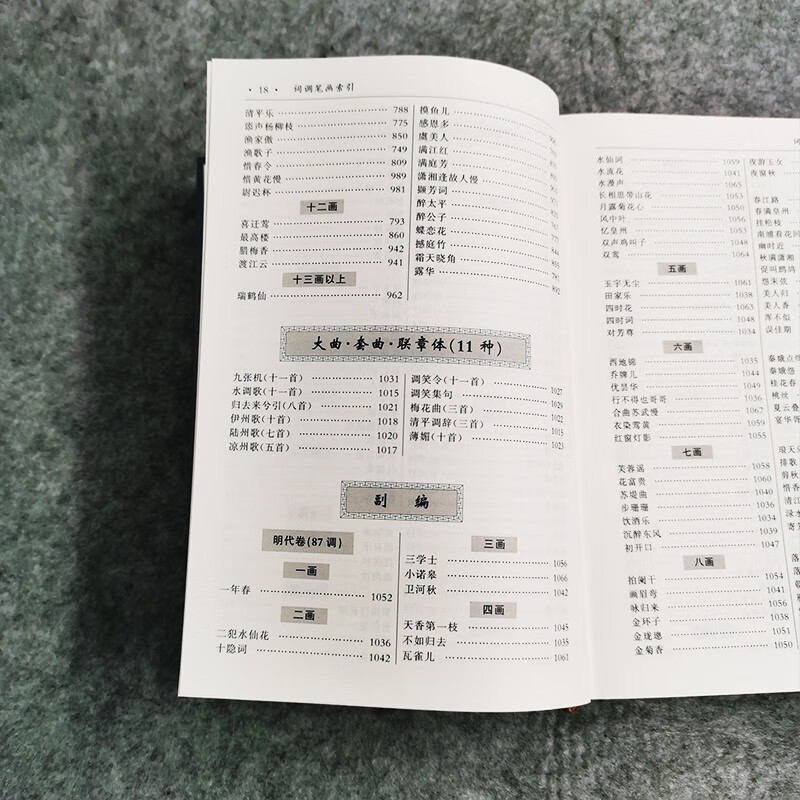 · 18 · 词调笔画索引
清平乐 788
添声杨柳枝 775
渔家傲 850
渔歌子 749
惜春令 809
惜黄花慢 989
尉迟杯 981
十二画
喜迁莺 793
最高楼 860
腊梅香 942
渡江云 941
十三画以上
瑞鹤仙 962
摸鱼儿
感恩多
虞美人
满江红
满庭芳
潇湘逢故人慢
撷芳词
醉太平
醉公子
蝶恋花
撼庭竹
霜天晓角
露华 892
大曲·套曲·联章体(11 种)
九张机(十一首) 1031
水调歌(十一首) 1015
归去来兮引(八首) 1021
伊州歌(十首) 1018
陆州歌(七首) 1020
凉州歌(五首) 1017
调笑令(十一首) 1027
调笑集句 1029
梅花曲(三首) 1022
清平调辞(三首) 1015
薄媚(十首) 1023
副 编
明代卷(87 调)
一画
一年春 1052
二画
二犯水仙花 1036
十隐词 1042
三画
三学士 1056
小诺皋 1066
卫河秋 1042
四画
天香第一枝 1045
不如归去 1035
瓦雀儿 1061
水仙词 1059
水流花 1041
水漫声 1065
长相思带山花 1053
月露菊花心 1050
风中叶 1056
忆皇州 1051
双声鸡叫子 1048
双莺 1064
五画
玉宇无尘 1061
田家乐 1038
四时花 1063
四时词 1048
对芳尊 1034
六画
西地锦 1035
乔牌儿 1044
优昙华 1049
行不得也哥哥 1036
合曲苏武慢 1067
衣染莺黄 1060
红窗灯影 1055
七画
芙蓉谣 1058
花富贵 1060
苏堤曲 1040
步珊珊 1036
饮酒乐 1034
沉醉东风 1039
初开口 1047
八画
拍阑干 1054
画眉弯 1041
咏归来 1056
金环子 1038
金珑璁 1051
金菊香 1050
夜游玉女
夜窗秋
春江路
春满皇州
挂松枝
南浦看花回
幽时近
秋满潇湘
促叫鹧鸪
怨朱弦
美人归
美人香
浑不似
误佳期
秦娥怨
桂花春
桃丝